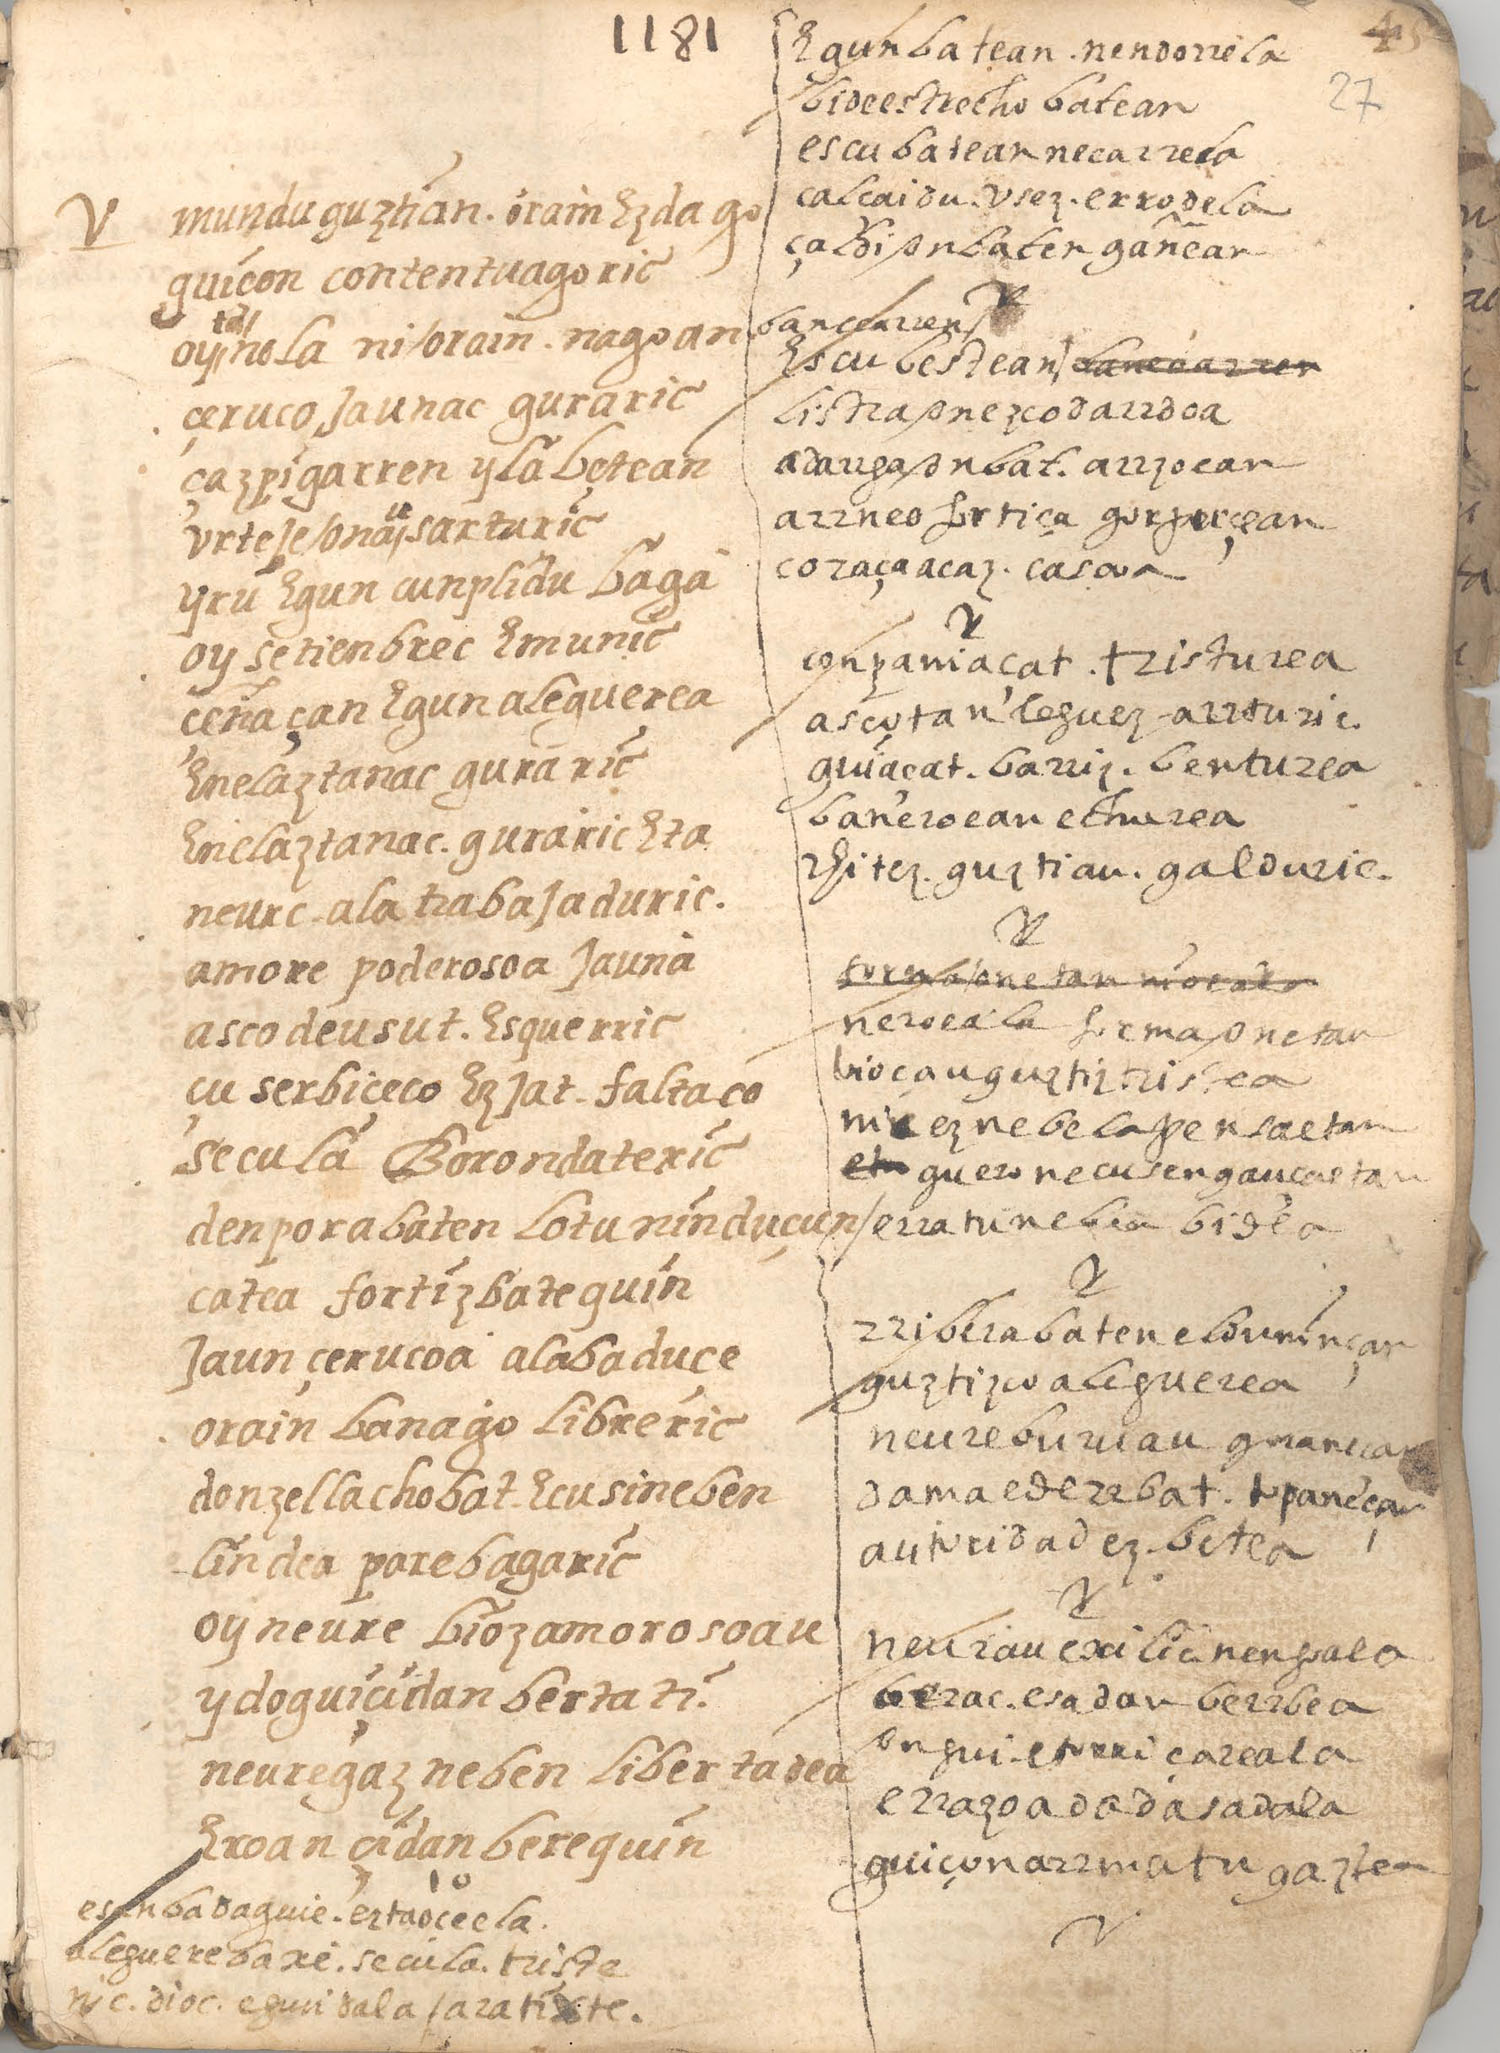 1181
45
27
V
munduguztian. orain Ezdago
guicon contentuagoric
oyta nola ni/orain. nagoan
çeruco Jaunac guraric
çazpigarren ylabetean
vrteJe/ona ut sarturic
yru Egun cunplidu baga
oy setienbrec Emunic
ceñaçan Egun aleguerea
Enelaztanac guraric
Enelaztanac. guraric Eta
neure ala trabaJaduric.
amore poderosoa Jauna
asco deusut. Esquerric
çu serbiçeco EzJat. faltaco
secula Borondateric
denpora baten lotu ninduçun
catea fortiz bateguin
Jaun çerucoa alabaduçe
orain banago libreric
donzellachobat. Ecusineben
lindea parebagaric
oy neure bioz amorosoau
ydoguiçidan bertati
neuregaz neben libertadea
Eroan çidan berequin
esan badaguie. eztadçeela.
aleguerebaxe. secula. triste
nic. dioc. eguidala/aratixte.
Egunbatean. nendorrela
bideestrecho batean
escubatean necarrela
calcaidu. vsez. errodela
çaldi/onbaten gañean
bancarren/
Escu bestean/
listra/onezco darrdoa
adauga/onbat. arrzoean
arrneo fortiça gorpuçean
coraçaacaz. casoa
conpaniaçat. tristurea
ascotan leguez arrturic.
guiaçat. barriz. benturea
baneroean ethurea
rhitez. guztiau. galduric.
neroeala forma/onetan
bioçau guztiz tristea
nic eznebela pensaetan
guero necusen gauçaetan
/erratunebia bidea
rribera baten eldunínçan
guztizco aleguerea
neureburuau
dama ederrbat. topanéçan
autoridadez. betea
neurau exilic nengoala
berac. esadan berrbea
ongui etorri çareala
errazoa dadasadala
guiçon arrmatu gaztea